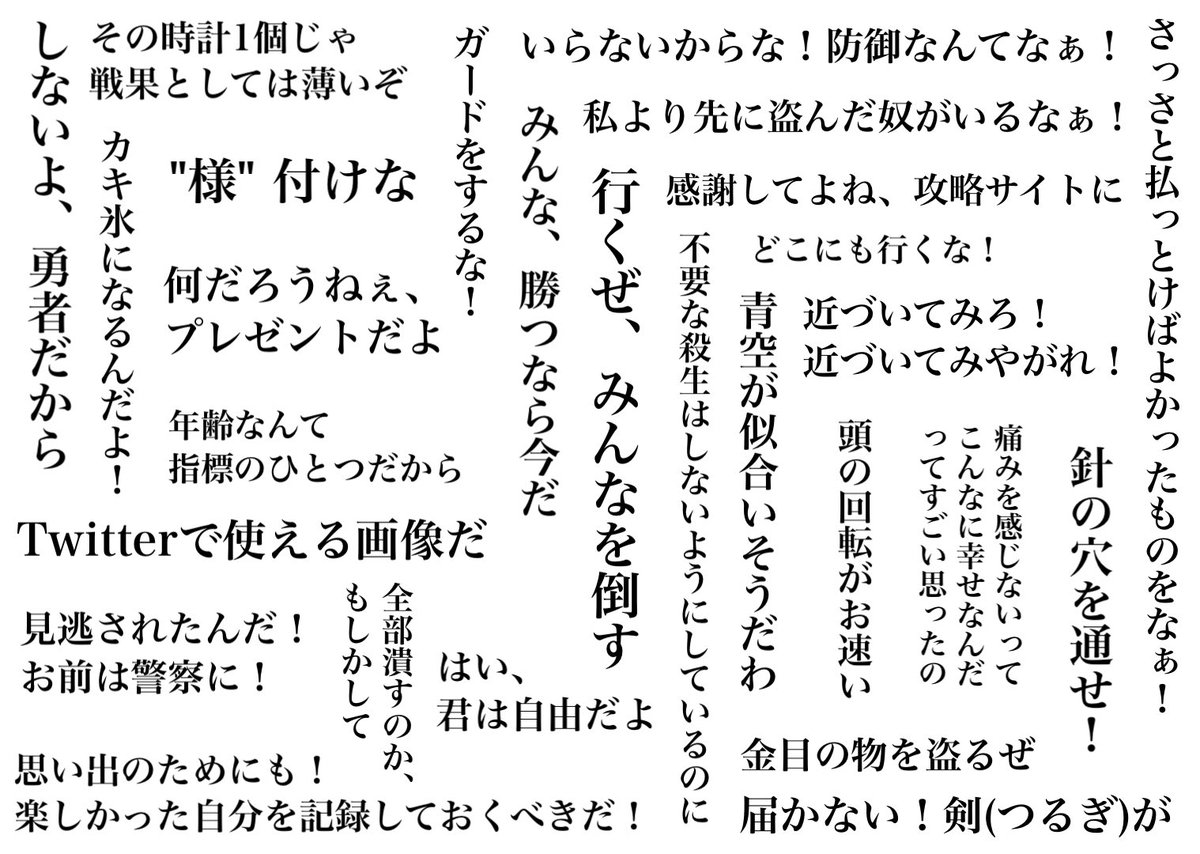 しないよ、勇者だから
その時計1個じゃ
戦果としては薄いぞ
カキ氷になるんだよ！
"様" 付けな
何だろうねぇ、
プレゼントだよ
年齢なんて
指標のひとつだから
ガードをするな！
いらないからな！防御なんてなぁ！
みんな、勝つなら今だ
私より先に盗んだ奴がいるなぁ！
行くぜ、みんなを倒す
感謝してよね、攻略サイトに
不要な殺生はしないようにしているのに
どこにも行くな！
青空が似合いそうだわ
近づいてみろ！
近づいてみやがれ！
頭の回転がお速い
痛みを感じないって
こんなに幸せなんだ
ってすごい思ったの
針の穴を通せ！
さっさと払っとけばよかったものをなぁ！
Twitterで使える画像だ
見逃されたんだ！
お前は警察に！
全部潰すのか、
もしかして
はい、
君は自由だよ
思い出のためにも！
楽しかった自分を記録しておくべきだ！
金目の物を盗るぜ
届かない！剣(つるぎ)が